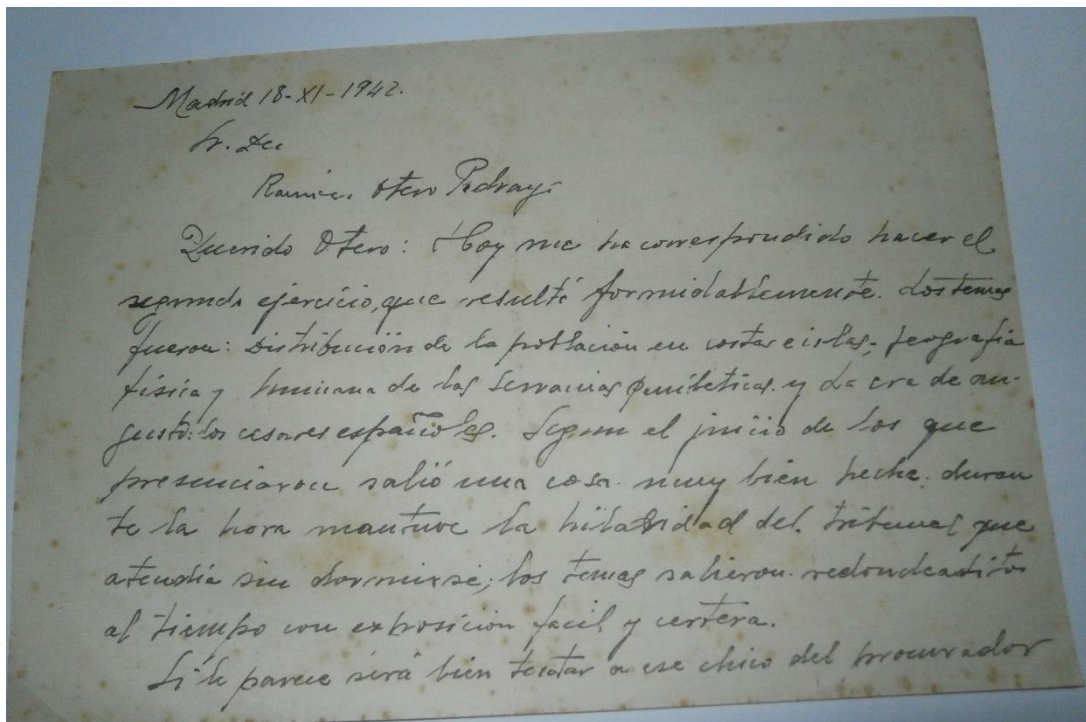 Madrid 18-XI-1942.
Sr. Don
Ramón Otero Pedrayo
Querido Otero: Hoy me ha correspondido hacer el
segundo ejercicio, que resultó formidablemente. Los temas
fueron: Distribución de la población en costas e islas; geografía
física y humana de las serranías penibéticas y La era de au-
gusto: los cesares españoles. Segun el juicio de los que
presenciaron salió una cosa muy bien hecha: duran
te la hora mantuve la hilaridad del tribunal que
atendía sin dormirse; los temas salieron redondeaditos
al tiempo con exposición facil y certera.
Si le parece será bien tratar a ese chico del procurador